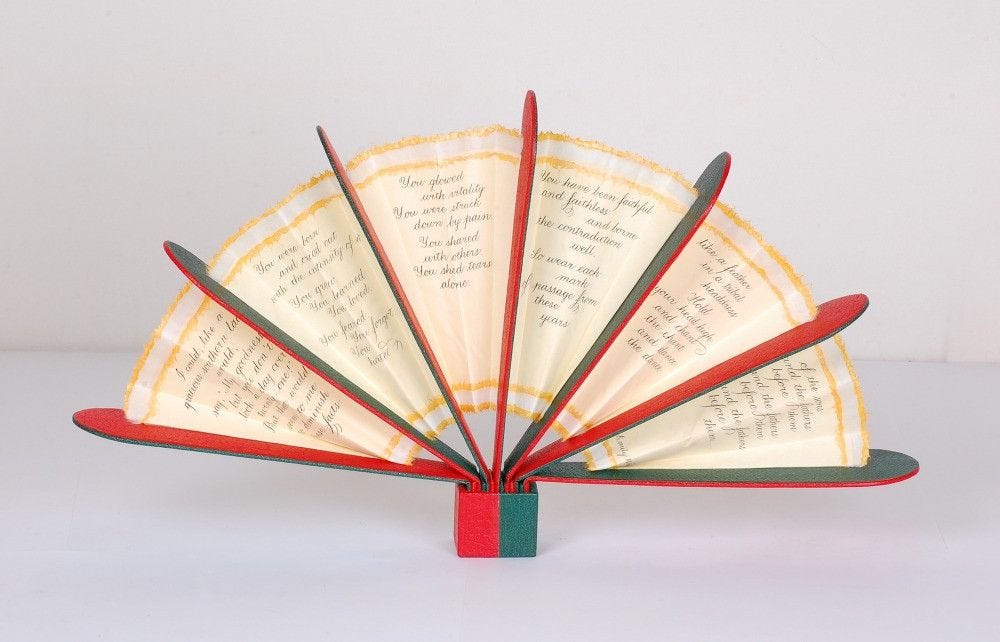 I could like a
gracious southern lad
would,
say, "My goodness
but you don't
look a day over
twenty one!"
But I would
seem to me
diminish
facts
You were born
and cried out
with the intensity of it.
You grew
You learned
You loved.
You feared
You forgot
You
You glowed
with vitality
You were struck
down by pain.
You shared
with others.
You shed tears
alone.
You have been faithful
and faithless
and borne
the contradiction
well.
So wear each
mark
of passage from
these
years
like a feather
in a tribal
headdress
Hold
your head high
and chant
the chant
and dance
the dance
of the sons
and the fathers
before them
and the fathers
before them
and the fathers
before
them